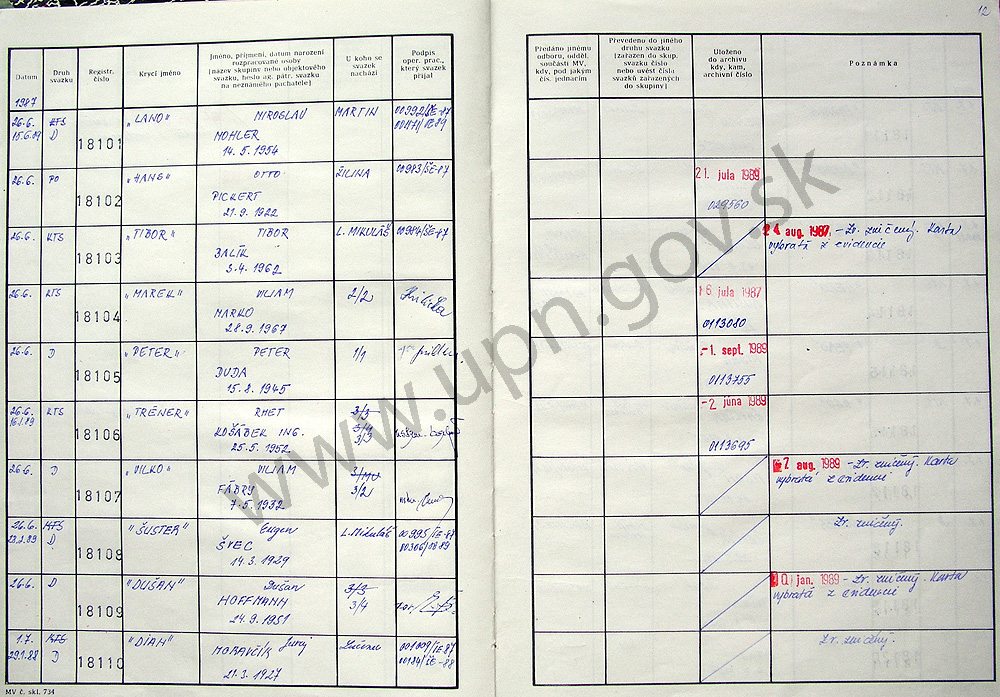 12
Datum
Druh svazku
Registr. číslo
Krycí jméno
Jméno, příjmení, datum narození
rozpracované osoby
(název skupiny nebo objektového
svazku, heslo ag. pátr. svazku
na neznámého pachatele)
U koho se
svazek
nachází
Podpis
oper. prac.,
který svazek
přijal
Předáno jinému
odboru, odděl.
součásti MV,
kdy, pod jakým
čís. jednacím
Převedeno do jiného
druhu svazku
(zařazen do skup.
svazku číslo
nebo uvést čísla
svazků zařazených
do skupiny)
Uloženo
do archivu
kdy, kam,
archivní číslo
Poznámka
1987
26.6. KTS „LANO" MIROSLAV MARTIN 00992/ŠE-87
15.6.89 D 18101 MOHLER
14.5.1954
26.6. PO „HANS" OTTO ŽILINA 00983/ŠE-87 21. júla 1989
18102 PICKERT 029560
21.9.1922
26.6. KTS „TIBOR" TIBOR L. MIKULÁŠ 00984/ŠE-87 24 aug. 1987 - Zv. zničený. Karta
18103 BALÍK vybratá z evidencie
3.4.1962
26.6. KTS „MAREK" VILIAM 2/2 16 júla 1987
18104 MARKO 0113080
28.9.1967
26.6. D „PETER" PETER 1/1 -1. sept. 1989
18105 DUDA 0113755
15.8.1945
26.6. KTS „TRÉNER" 3/3 -2 júna 1989
18106 KOŠÁBEK ING. 3/4
25.5.1952 3/3 0113695
26.6. D „VILKO" VILIAM 7 aug. 1989 - Zv. zničený. Karta
18107 FÁBRY 3/2 vybratá z evidencie
7.5.1932
26.6. KTS „ŠUSTER" Eugen L. Mikuláš 00995/ŠE-87 Zv. zničený.
D 18108 ŠVEC
14.3.1929
26.6. D „DUŠAN" Dušan 3/3 jan. 1989 - Zv. zničený. Karta
18109 HOFFMANN 3/4 vybratá z evidencie
24.9.1951
1.7. KTS „DIAN" Juraj Lučenec 001009/ŠE-87 Zv. zničený.
29.1.88 D 18110 MORAVČÍK 00124/ŠE-88
21.3.1927
MV č. skl. 734
www.upn.gov.sk